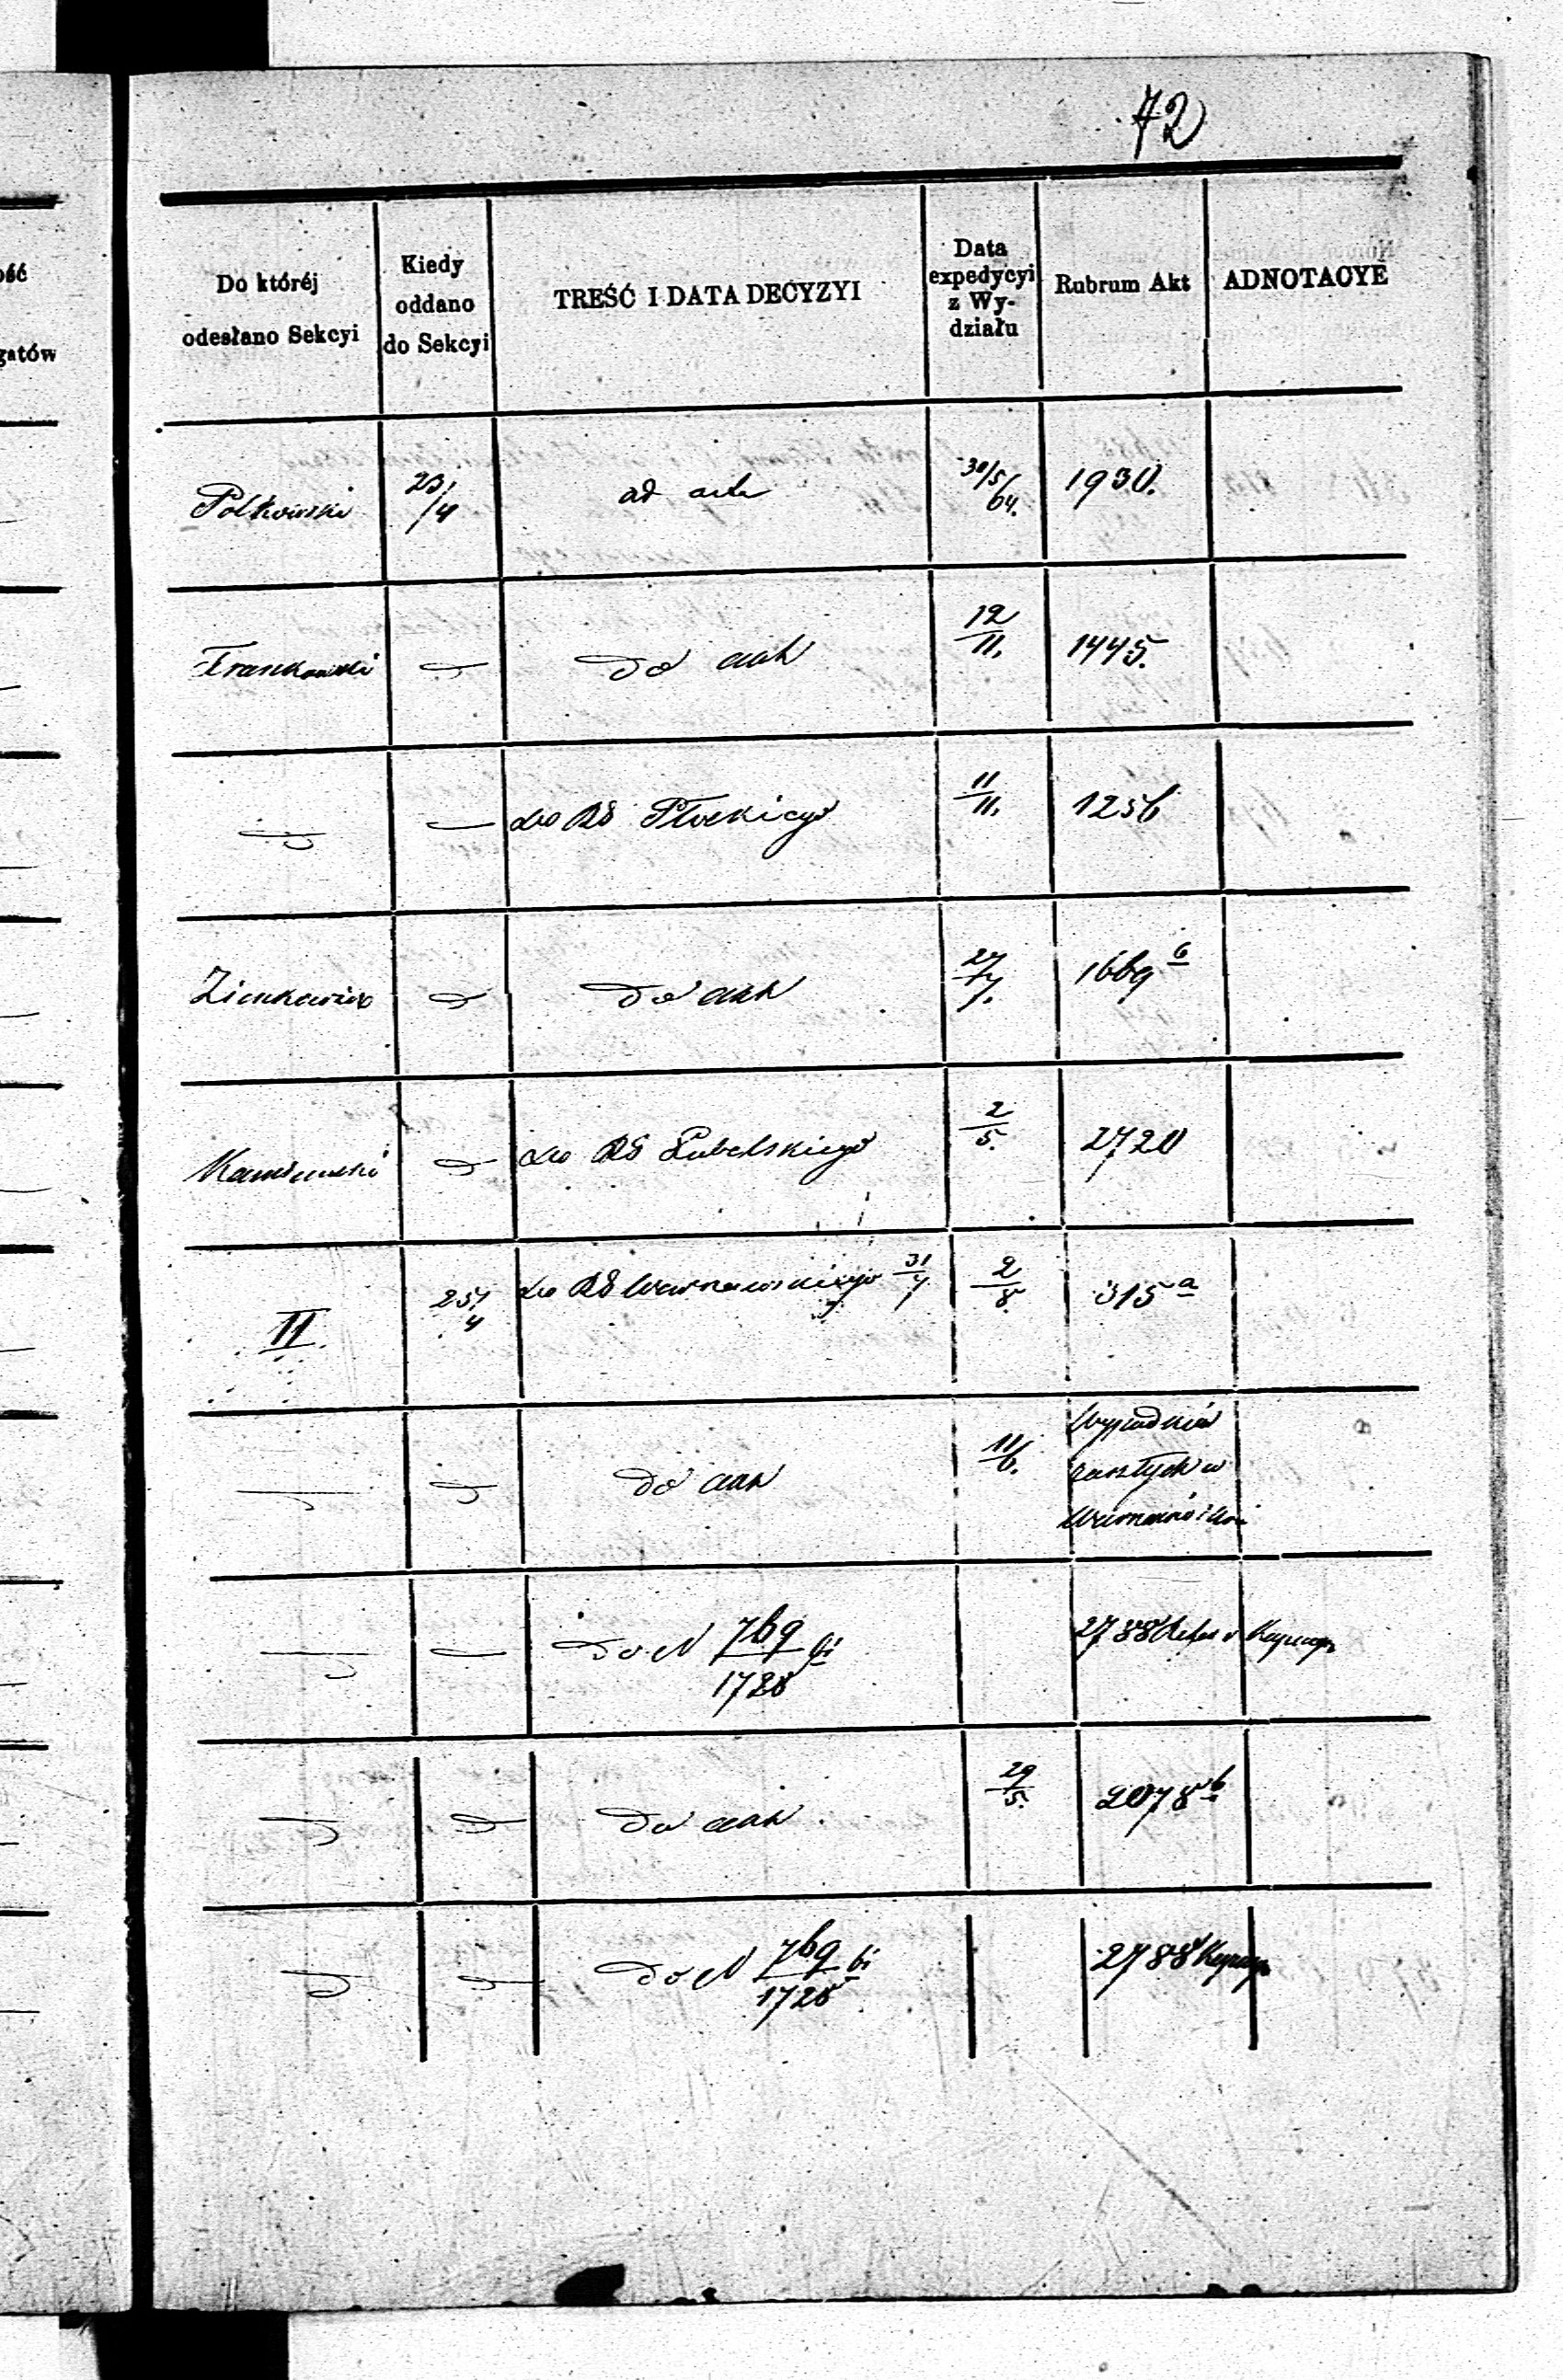 72
ość
gatów
Do któréj
odesłano Sekcyi
Kiedy
oddano
do Sekcyi
TREŚĆ I DATA DECYZYI
Data
expedycyi
z Wy-
działu
Rubrum Akt
ADNOTACYE
Polkowski 23/4 ad acta 30/5/64. 1930.
Frankowski do akt 12/11. 1445.
do RS Płockiego 11/11. 1256
Zienkowicz do akt 27/7. 1669 b
Kamiński do RS Lubelskiego 2/5. 2720
II 25/4 do RS Warszawskiego 31/7 2/8. 315 a
do akt 11/6. Wypadków
zaszłych w
do N 769/1728 2788
do akt 29/5. 2078 b
do N 769/1728 2788